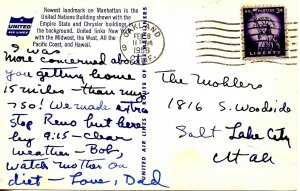 UNITED
AIR LINES
Newest landmark on Manhattan is the
United Nations Building shown with the
Empire State and Chrysler buildings in
the background. United links New York
with the Midwest, the West, All the
Pacific Coast, and Hawaii.
UNITED AIR LINES
FEB
11 AM
1956
I was
more concerned about
you getting home
15 miles - than my
750! We made extra
stop Reno but here
by 9:15 - clear
weather - Bob,
watch mother on
diet - Love, Dad
The Mohlers
1816 S. Woodside
Salt Lake City
Utah